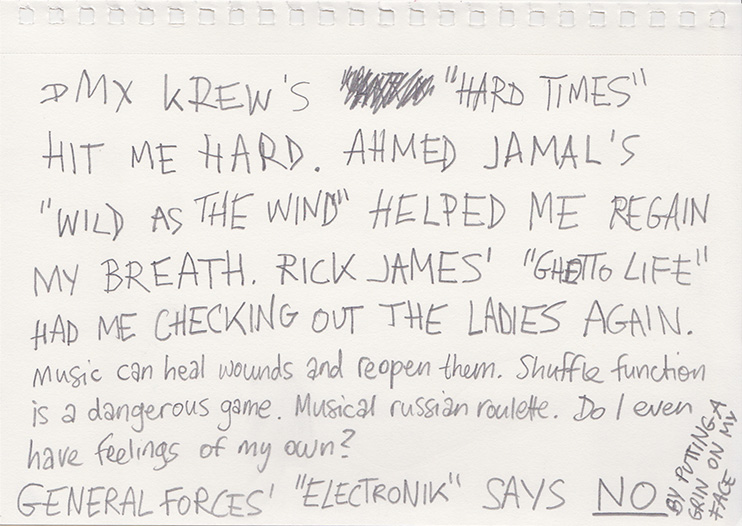 DMX KREW'S "HARD TIMES"
HIT ME HARD. AHMED JAMAL'S
"WILD AS THE WIND" HELPED ME REGAIN
MY BREATH. RICK JAMES' "GHETTO LIFE"
HAD ME CHECKING OUT THE LADIES AGAIN.
Music can heal wounds and reopen them. Shuffle function
is a dangerous game. Musical russian roulette. Do I even
have feelings of my own?
GENERAL FORCES' "ELECTRONIK" SAYS NO
BY PUTTING A
GRIN ON MY
FACE